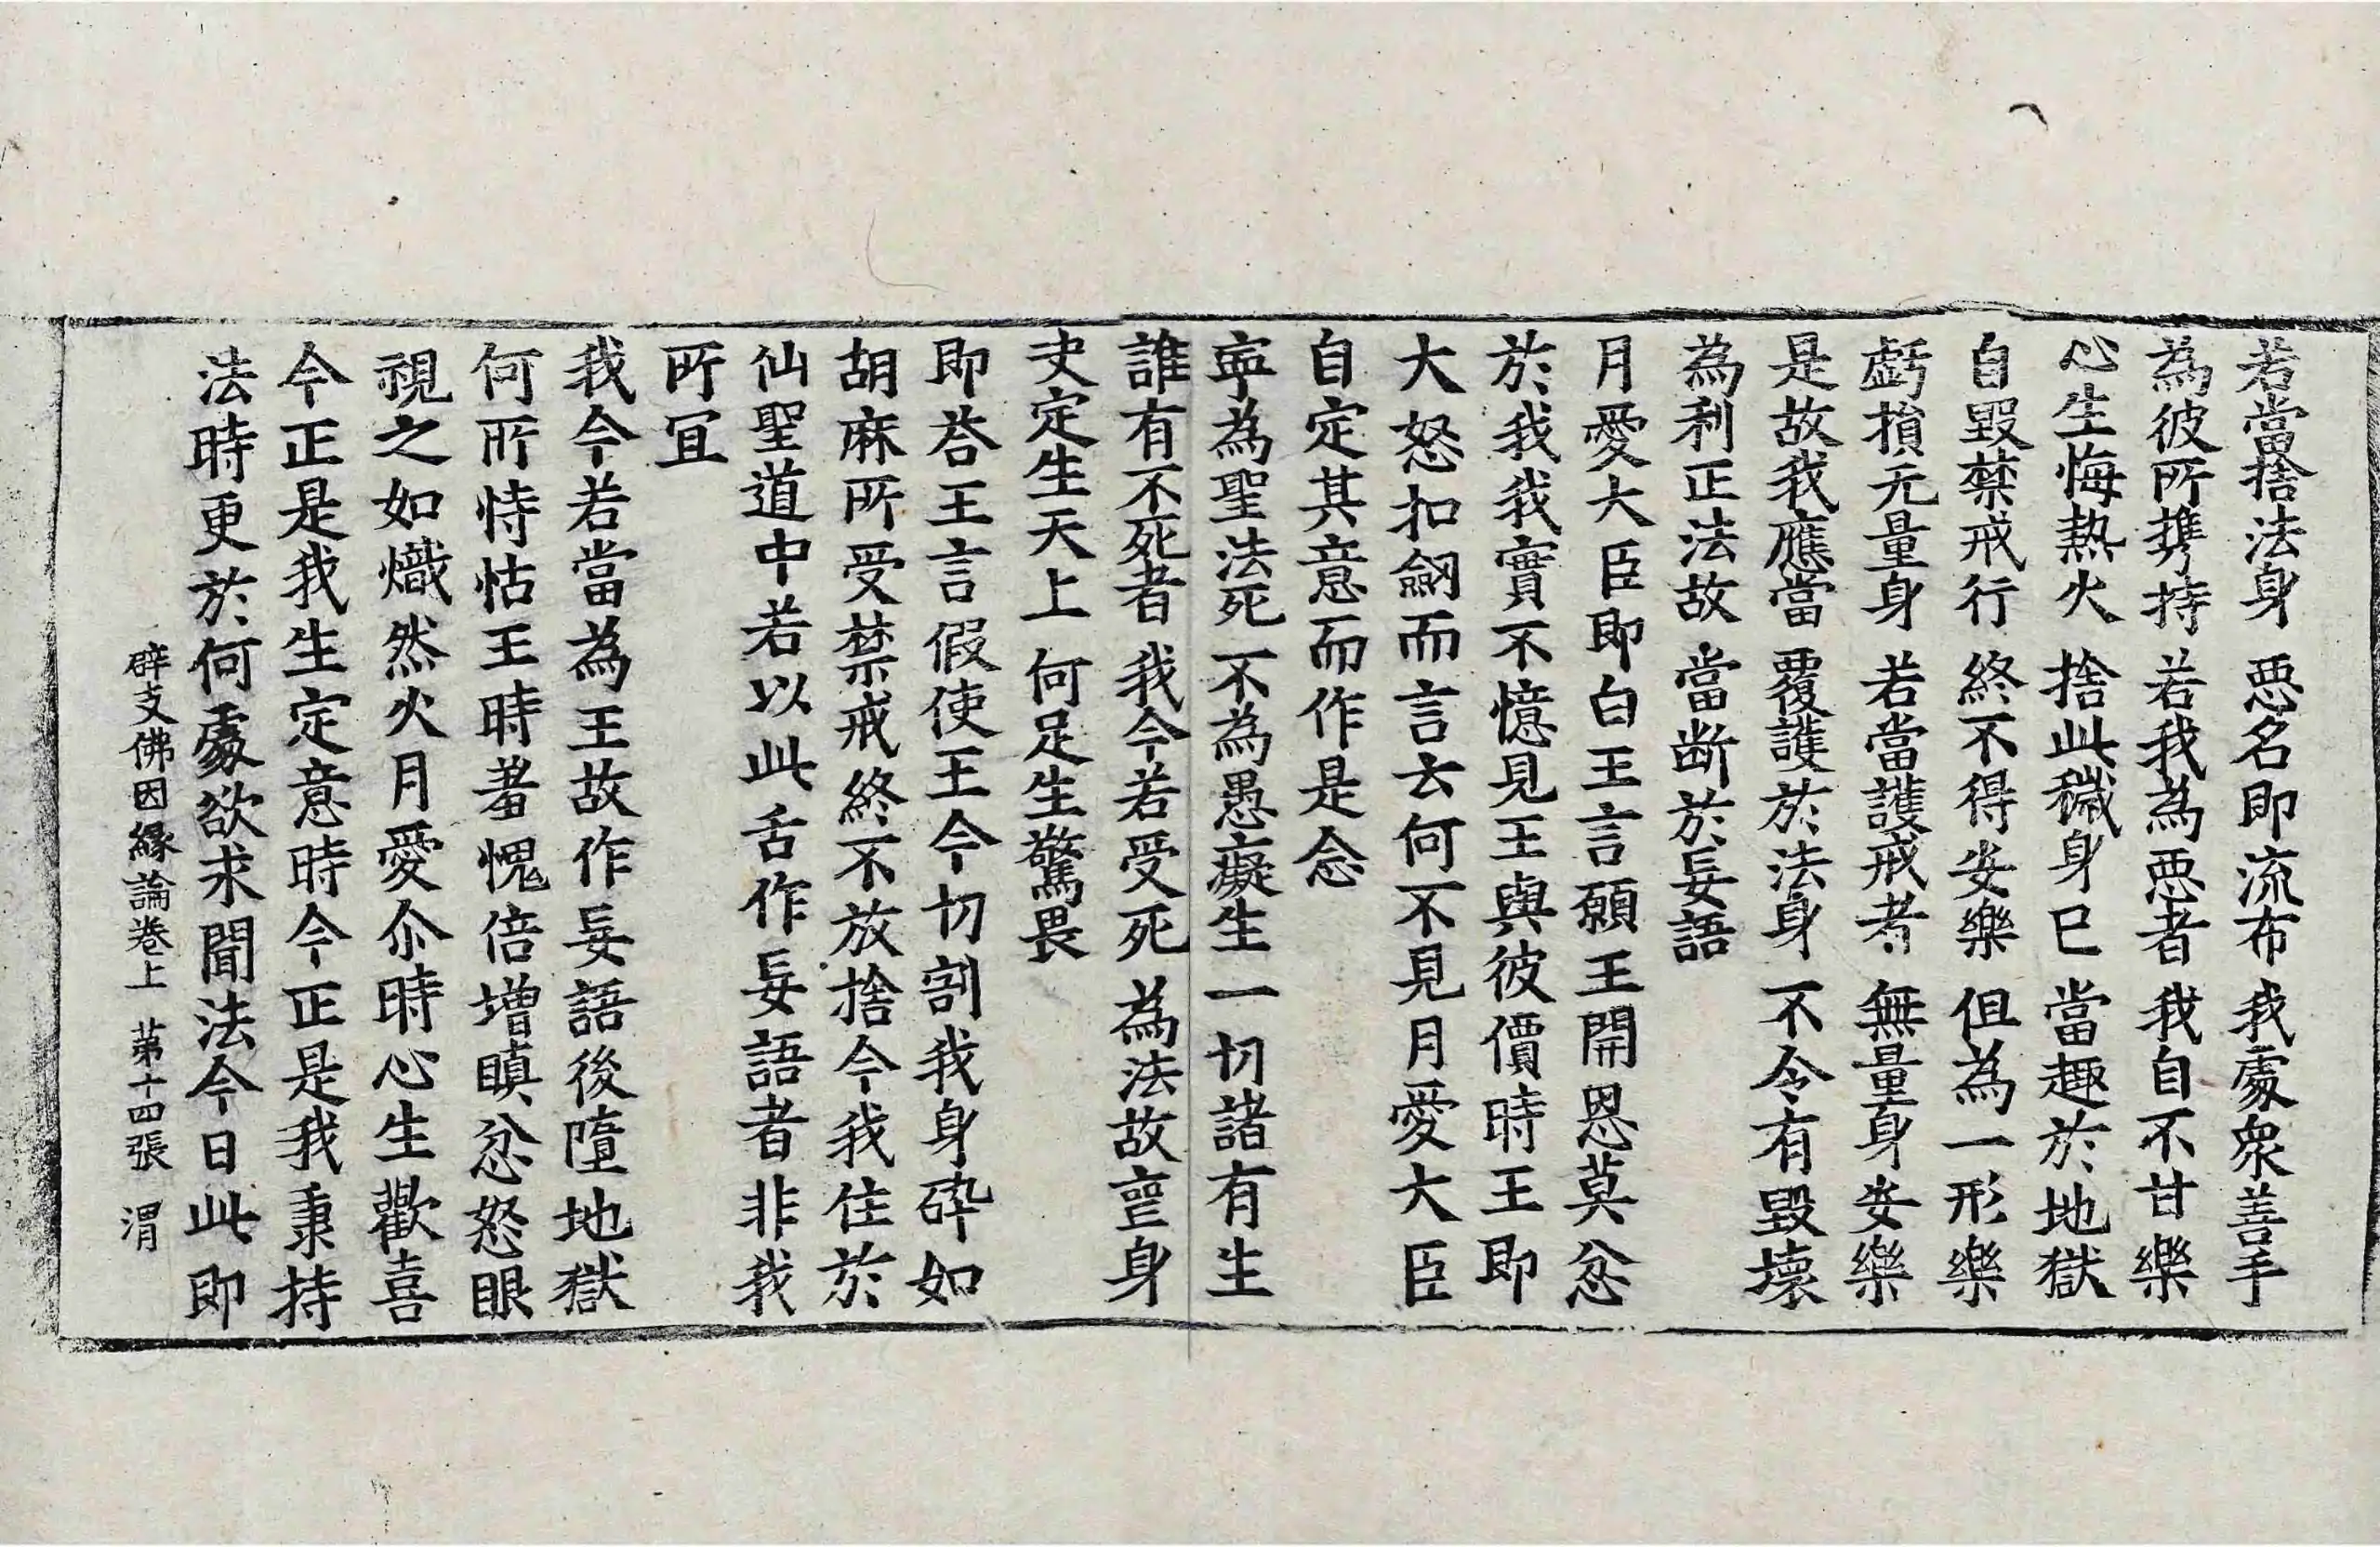 若當捨法身 悪名即流布 我處衆善手
為彼所携持 若我為悪者 我自不甘樂
心生悔熱火 捨此穢身已 當趣於地獄
自毀禁戒行 終不得安樂 但為一形樂
虧損无量身 若當護戒者 無量身安樂
是故我應當 覆護於法身 不令有毀壞
為利正法故 當断於妄語
月愛大臣即白王言願王開恩莫忿
於我我實不憶見王與彼價時王即
大怒扣劒而言云何不見月愛大臣
自定其意而作是念
寜為聖法死 不為愚癡生 一切諸有生
誰有不死者 我今若受死 為法故䘮身
史定生天上 何足生驚畏
即荅王言假使王今切割我身碎如
胡麻所受禁戒終不放捨今我住於
仙聖道中若以此舌作妄語者非我
所冝
我今若當為王故作妄語後墮地獄
何所恃怙王時羞愧倍增瞋忿怒眼
視之如熾然火月愛尒時心生歡喜
今正是我生定意時今正是我秉持
法時更於何處欲求聞法今日此即
辟支佛因緣論卷上 苐十四張 渭